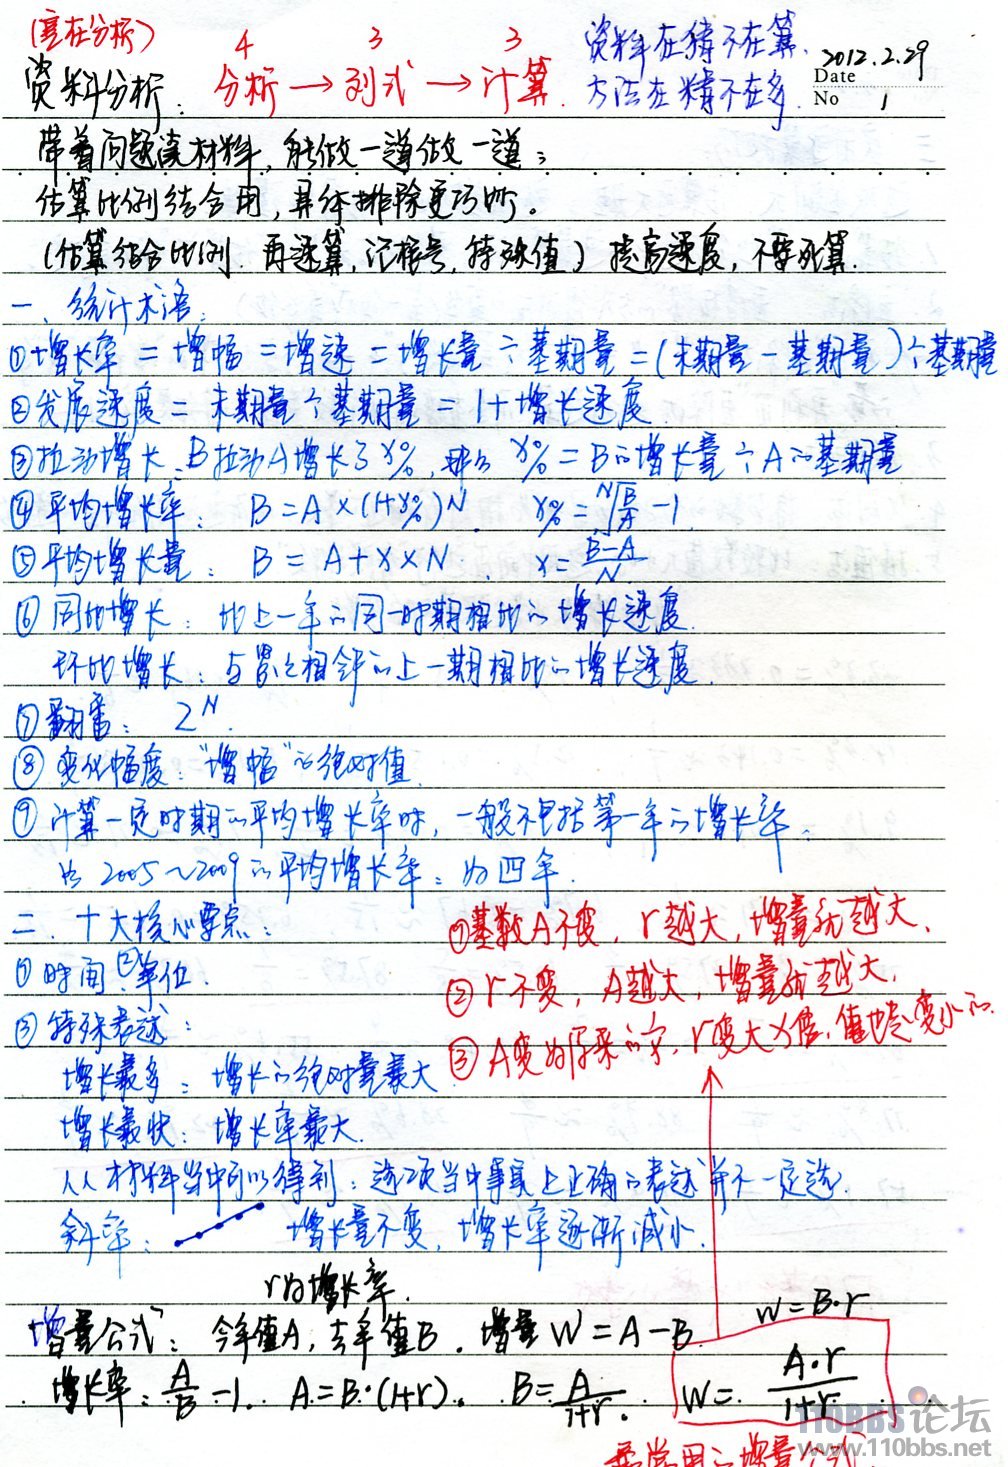 (重在分析)
4 3 3
资料分析: 分析→列式→计算.
资料在猜不在算.
方法在精不在多.
2012.2.29
Date
No 1
带着问题读材料,能做一道做一道;
估算比例结合用,具体排除更巧妙。
(估算结合比例.再速算,记根号,特殊值)提高速度,不要死算.
一、统计术语:
①增长率=增幅=增速=增长量÷基期量=(末期量-基期量)÷基期量
②发展速度=末期量÷基期量=1+增长速度
③拉动增长、B拉动A增长了x%,那么 x%=B的增长量÷A的基期量
④平均增长率: B=A×(1+x%)^N. x%=^N√(B/A)-1.
⑤平均增长量: B=A+x×N . x=(B-A)/N
⑥同比增长: 比上一年的同一时期相比的增长速度.
环比增长:与紧之相邻的上一期相比的增长速度.
⑦翻番: 2^N.
⑧变化幅度:"增幅"的绝对值.
⑨计算一定时期的平均增长率时,一般不包括第一年的增长率.
如2005~2009的平均增长率:为四年.
二.十大核心要点:
①时间②单位.
③特殊表述:
增长最多:增长的绝对量最大
增长最快:增长率最大.
从材料当中可以得到:选项当中事实上正确的表述并不一定选.
斜率: 增长量不变,增长率逐渐减小.
①基数A不变,r越大,增量就越大.
②r不变,A越大,增量就越大.
③A变为原来的 ,r变大x倍,值也是变小的.
r为增长率.
增量公式:今年值A,去年值B.增量W=A-B
W=B·r
增长率:A/B-1. A=B·(1+r). B=A/(1+r). W=A·r/(1+r)
最常用的增量公式.
110BBS论坛
www.110bbs.net